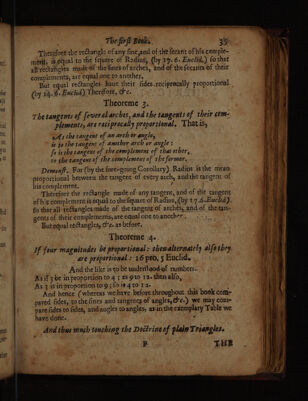 The first Book. 35
Therefore the rectangle of any sine, and of the secant of his comple-
ment, is equal to the square of Radius, (by 17. 6. Euclid.) so that
all rectangles made of the sines of arches, and of the secants of their
complements, are equal one to another.
But equal rectangles have their sides reciprocally proportional
(by 14. 6. Euclid.) Therefore, &c.
Theoreme 3.
The tangents of several arches, and the tangents of their com-
plements, are reciprocally proportional. That is,
As the tangent of an arch or angle,
is to the tangent of another arch or angle:
so is the tangent of the complement of that other,
to the tangent of the complement of the former.
Demonst. For (by the fore-going Corollary) Radius is the mean
proportional between the tangent of every arch, and the tangent of
his complement.
Therefore the rectangle made of any tangent, and of the tangent
of his complement is equal to the square of Radius, (by 17. 6. Euclid.)
so that all rectangles made of the tangent of arches, and of the tan-
gents of their complements, are equal one to another.
But equal rectangles, &c. as before.
Theoreme 4.
If four magnitudes be proportional: then alternately also they
are proportional: 16 pro, 5 Euclid.
And the like is to be understood of numbers.
As if 3 be in proportion to 4 : as 9 to 12. then also,
As 3 is in proportion to 9 : so is 4 to 12.
And hence (whereas we have before throughout this book com-
pared sides, to the sines and tangents of angles, &c.) we may com-
pare sides to sides, and angles to angles, as in the exemplary Table we
have done.
And thus much touching the Doctrine of plain Triangles.
F THE